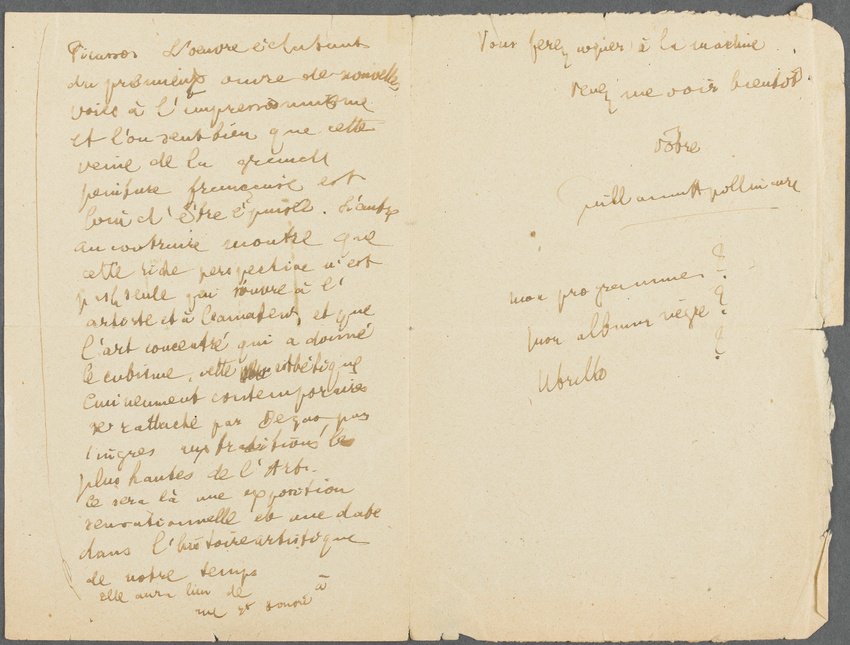 Picasso. L'œuvre éclatant
du premier ouvre de nouvelles
voies à l'impressionnisme
et l'on sent bien que cette
veine de la grande
peinture française est
loin d'être épuisée. L'autre
au contraire montre que
cette riche perspective n'est
pas la seule qui s'ouvre à l'
artiste et à l'amateur, et que
l'art concentré qui a donné
le cubisme, cette esthétique
éminemment contemporaine
se rattache par Degas par
Ingres aux traditions les
plus hautes de l'Art.
Ce sera là une exposition
sensationnelle et une date
dans l'histoire artistique
de notre temps
elle aura lieu de
à
rue St Honoré
Vous ferez copier à la machine
Venez me voir bientôt
Vôtre
Guillaume Apollinaire
mon programmes ?
mon album nègre ?
Utrillo ?